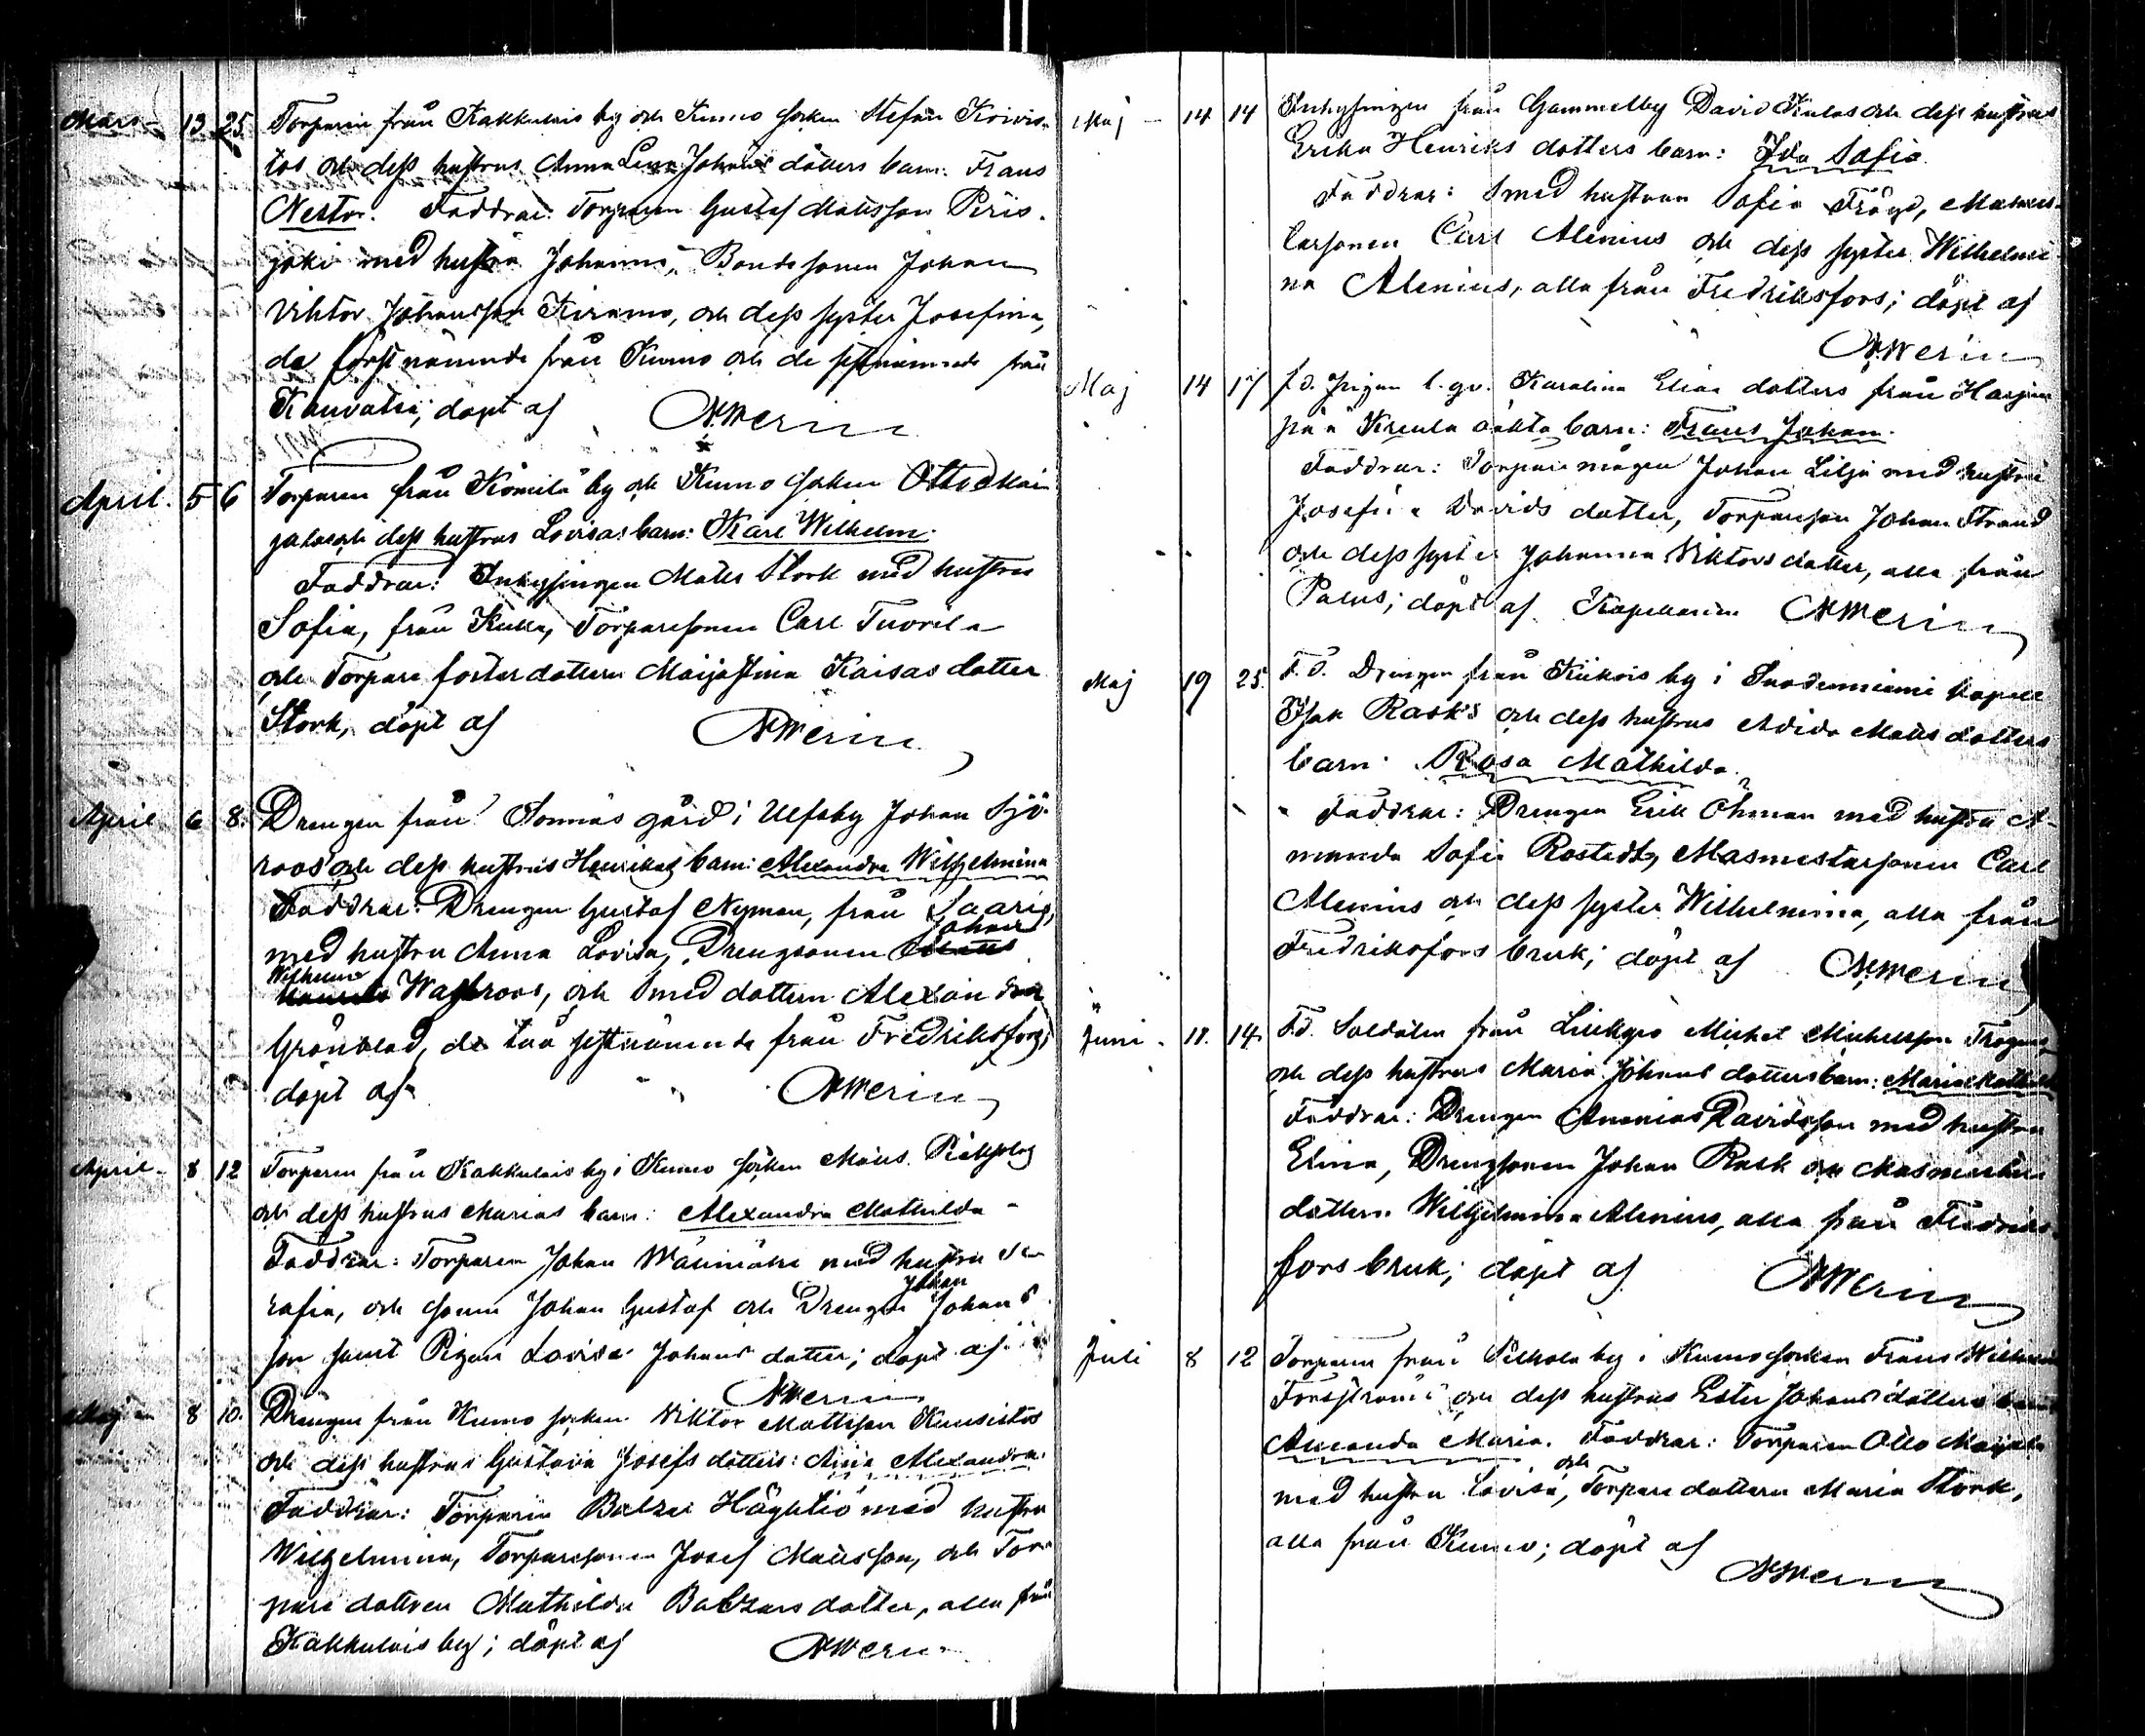 Mars 13 25 Torparen från Kakkulais by och Kumo socken Stefan Koivis-
tos och dess hustrus Anna Lena Johans dotters barn: Frans
Nestor. Faddrar: Torparen Gustaf Matsson Piris-
joki med hustru Johanna, Bondesonen Johan
Viktor Johansson Kiramo, och dess syster Josefina,
de förstnämnde från Kumo och de sistnämnde från
Kauvatsa; döpt af N Merin
April 5 6 Torparen från Kömilä by och Kumo socken Otto Mai-
jalas och dess hustrus Lovisas barn: Karl Wilhelm.
Faddrar: Inhysingen Matts Stork med hustru
Sofia, från Kulla, Torparesonen Carl Tuorila
och Torpare fosterdottern Maijastina Kaisas dotter
Stork, döpt af N Merin
April 6 8. Drengen från Sonnäs gård i Ulfsby Johan Sjö-
roos och dess hustrus Henrikas barn: Alexandra Wilhelmina
Faddrar: Drengen Gustaf Nyman, från Saaris,
med hustru Anna Lovisa, Drengsonen Johan
Wilhelm Wassroos, och Smed dottern Alexandra
Grönblad, de två sistnämnde från Fredriksfors;
döpt af N Merin
April 8 12 Torparen från Kakkulais by i Kumo socken Matts
och dess hustrus Marias barn: Alexandra Mathilda
Faddrar: Torparen Johan Wäinimäki med hustru Se-
rafia, och sonen Johan Gustaf och Drengen Johan Johans
son samt Pigan Lovisa Johans dotter; döpt af
N Merin
Maj 8 10. Drengen från Kumo socken Viktor Mattsson Kuusistos
och dess hustrus Gustava Josefs dotters: Aina Alexandra.
Faddrar: Torparen Balzar Häyhtiö med hustru
Wilhelmina, Torparesonen Josef Mattsson, och Tor-
pare dottren Mathilda Balzars dotter, alla från
Kakkulais by; döpt af N Merin
Maj 14 14 Inhysingen från Gammelby David Kulas och dess hustrus
Erika Henriks dotters barn: Ida Sofia.
Faddrar: Smed hustrun Sofia Fröjd, Masmes-
tarsonen Carl Alenius och dess syster Wilhelmi-
na Alenius, alla från Fredriksfors; döpt af
N Merin
Maj 14 17 f.d. Pigan l. qv. Karolina Elias dotters från Harjun
pää Kreula oäkta barn: Frans Johan.
Faddrar: Torpare mågen Johan Lilja med hustru
Josefina Davids dotter, Torparson Johan Strand
och dess syster Johanna Viktors dotter, alla från
Palus; döpt af Kapellanen N Merin
Maj 19 25. F.d. Drengen från Kiikois by i Suodenniemi kapell
Isak Rask's och dess hustrus Adida Matts dotters
barn: Rosa Mathilda.
Faddrar: Drengen Erik Öhman med hustru A-
manda Sofia Rostedt, Masmestarsonen Carl
Alenius och dess syster Wilhelmina, alla från
Fredriksfors bruk; döpt af N Merin
Juni 11. 14. F.d. Soldaten från Luikkyo Michel Michelsson
och dess hustrus Maria Johans dotters barn: Maria Mathilda
Faddrar: Drengen Ananias Davidsson med hustru
Elina, Drengsonen Johan Rask och Masmestar
dottern Wilhelmina Alenius, alla från Fredriks-
fors bruk; döpt af N Merin
Juli 8 12 Torparen från Pelhola by i Kumo socken Frans Wilhelm
Forsströms och dess hustrus Ester Johans dotters barn
Amanda Maria. Faddrar: Torparen Otto Maijala
med hustru Lovisa, och Torpare dottern Maria Stork,
alla från Kumo; döpt af
N Merin